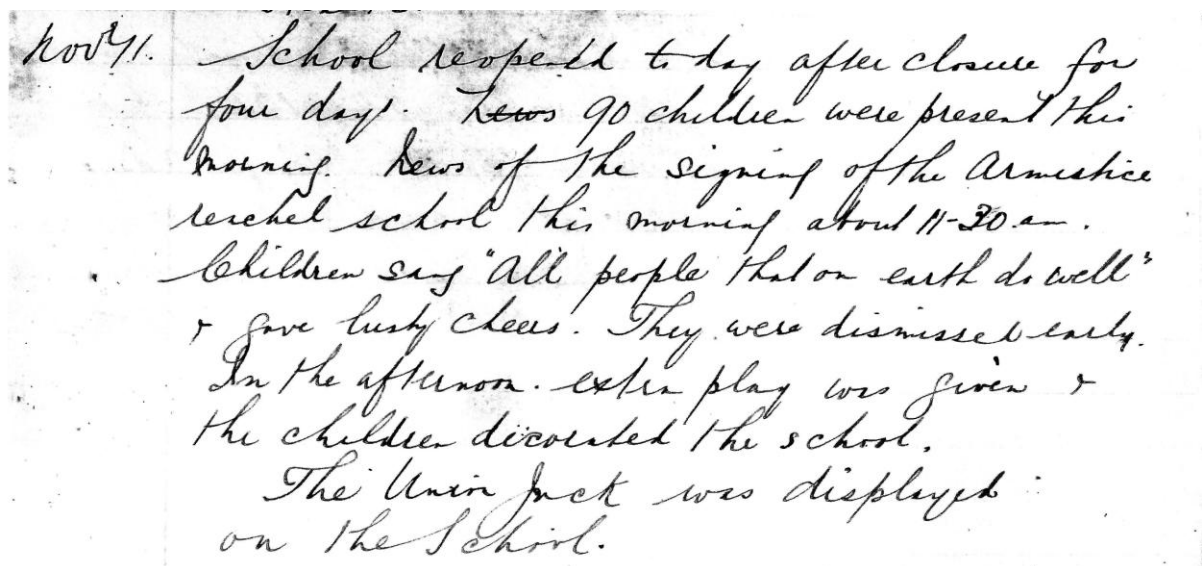 Novr 11. School reopened to day after closure for
four days. News 90 children were present this
morning. News of the signing of the Armistice
reached school this morning about 11-30 am.
Children sang "All people that on earth do well"
& gave lusty cheers. They were dismissed early.
In the afternoon. extra play was given &
the children decorated the school.
The Union Jack was displayed
on the School.